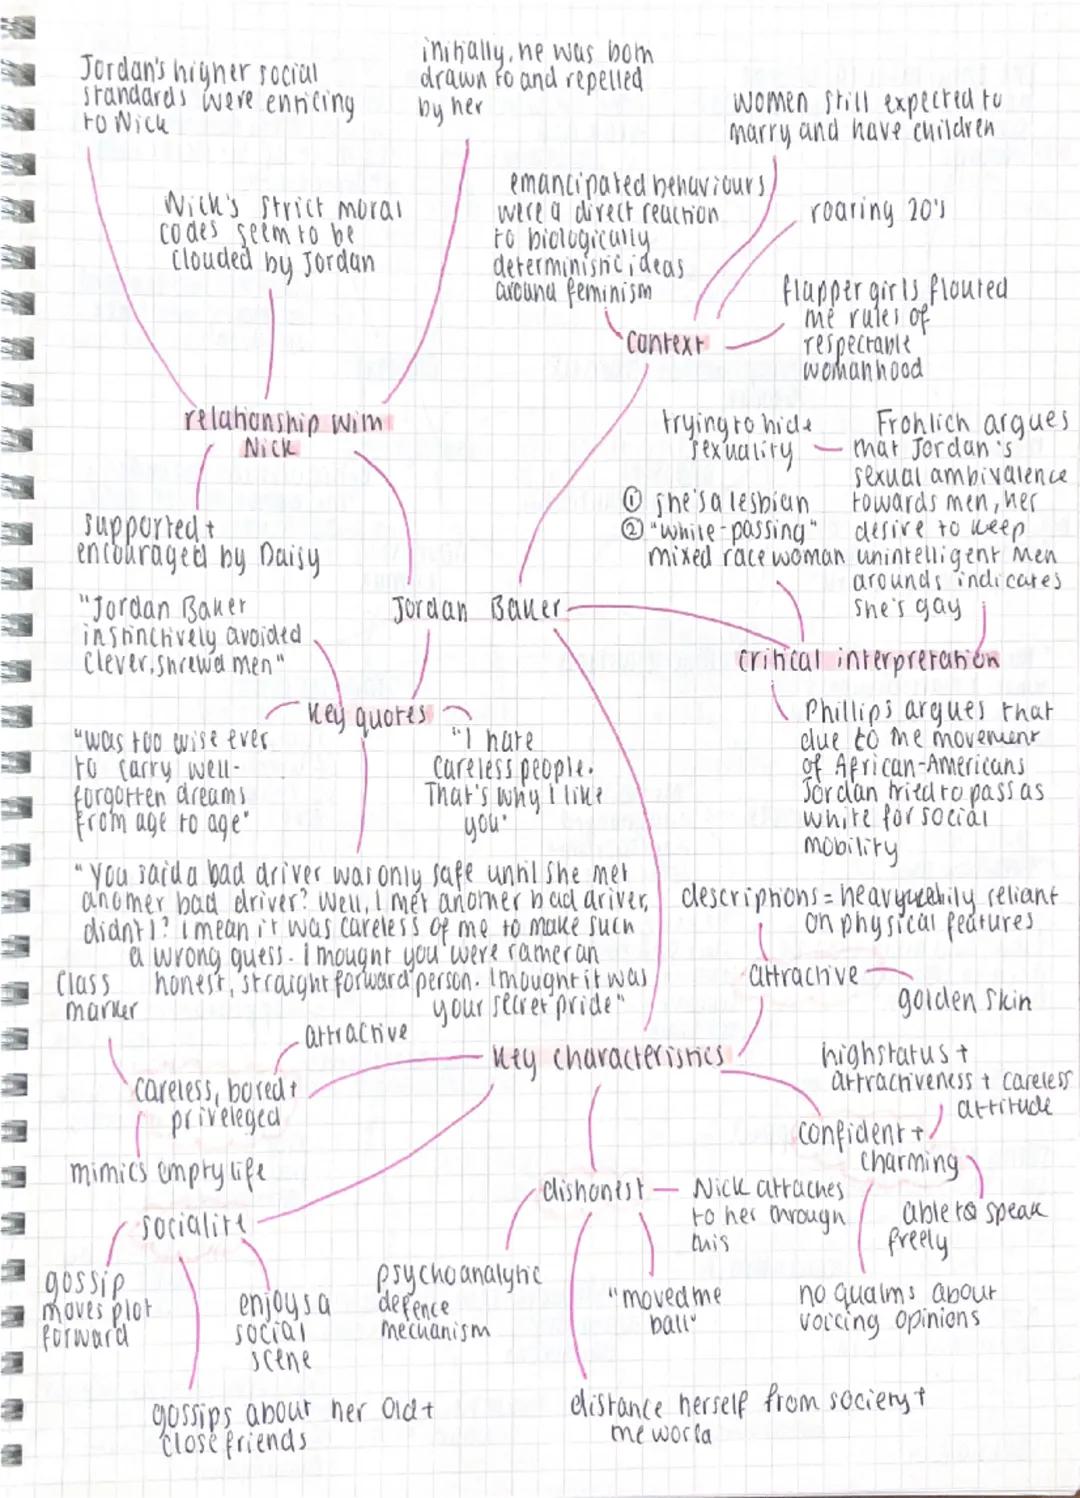 Jordan's higher social
standards were enticing
to Nick
initially, he was both
drawn to and repelled
by her
women still expected to
marry and have children
Nick's strict moral
codes seem to be
clouded by Jordan
emancipated behaviours
were a direct reaction
to biologically
deterministic ideas
around feminism
roaring 20's
flapper girls flouted
the rules of
respectable
womanhood
context
relationship with
Nick
supported +
encouraged by Daisy
trying to hide
sexuality
① she's a lesbian
② "white-passing"
mixed race woman
Frohlich argues
that Jordan's
sexual ambivalence
towards men, her
desire to keep
unintelligent men
around, indicates
she's gay
Jordan Baker
critical interpretation
"Jordan Baker
instinctively avoided
clever, shrewd men"
key quotes
"was too wise ever
to carry well-
forgotten dreams
from age to age"
"I hate
careless people.
That's why I like
you"
Phillips argues that
due to the movement
of African-Americans
Jordan tried to pass as
white for social
mobility
"You said a bad driver was only safe until she met
another bad driver? Well, I met another bad driver,
didn't I? I mean it was careless of me to make such
a wrong guess. I thought you were rather an
honest, straight forward person. I thought it was
your secret pride"
descriptions = heavy reliant
on physical features
attractive
golden skin
key characteristics
class
marker
attractive
careless, bored +
priveleged
mimics empty life
high status +
attractiveness + careless
attitude
confident +
charming
able to speak
freely
no qualms about
voicing opinions
dishonest
Nick attaches
to her through
this
"moved the
ball"
psychoanalytic
defence
mechanism
distance herself from society +
the world
socialite
gossip
moves plot
forward
enjoys a
social
scene
gossips about her old +
close friends